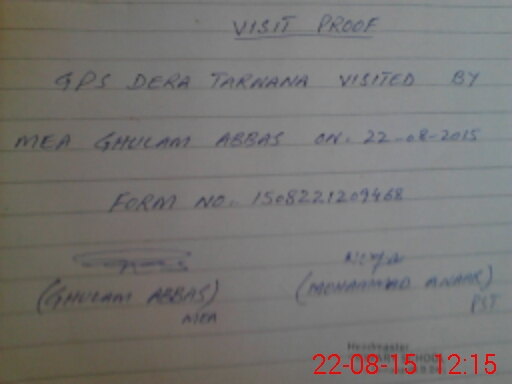 VISIT PROOF
GPS DERA TARNANA VISITED BY
MEA GHULAM ABBAS ON. 22-08-2015
FORM NO. 1508221209468
(GHULAM ABBAS) (MOHAMMAD ANAAR)
MEA PST
Headmaster
SCHOOL
22-08-15 12:15